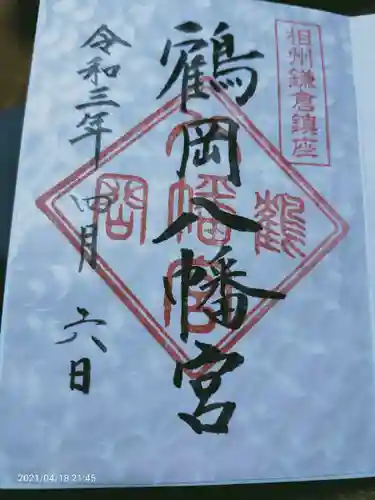 相州鎌倉鎮座
鶴岡八幡宮
令和三年四月六日
鶴
八幡宮
岡
2021/04/18 21:45